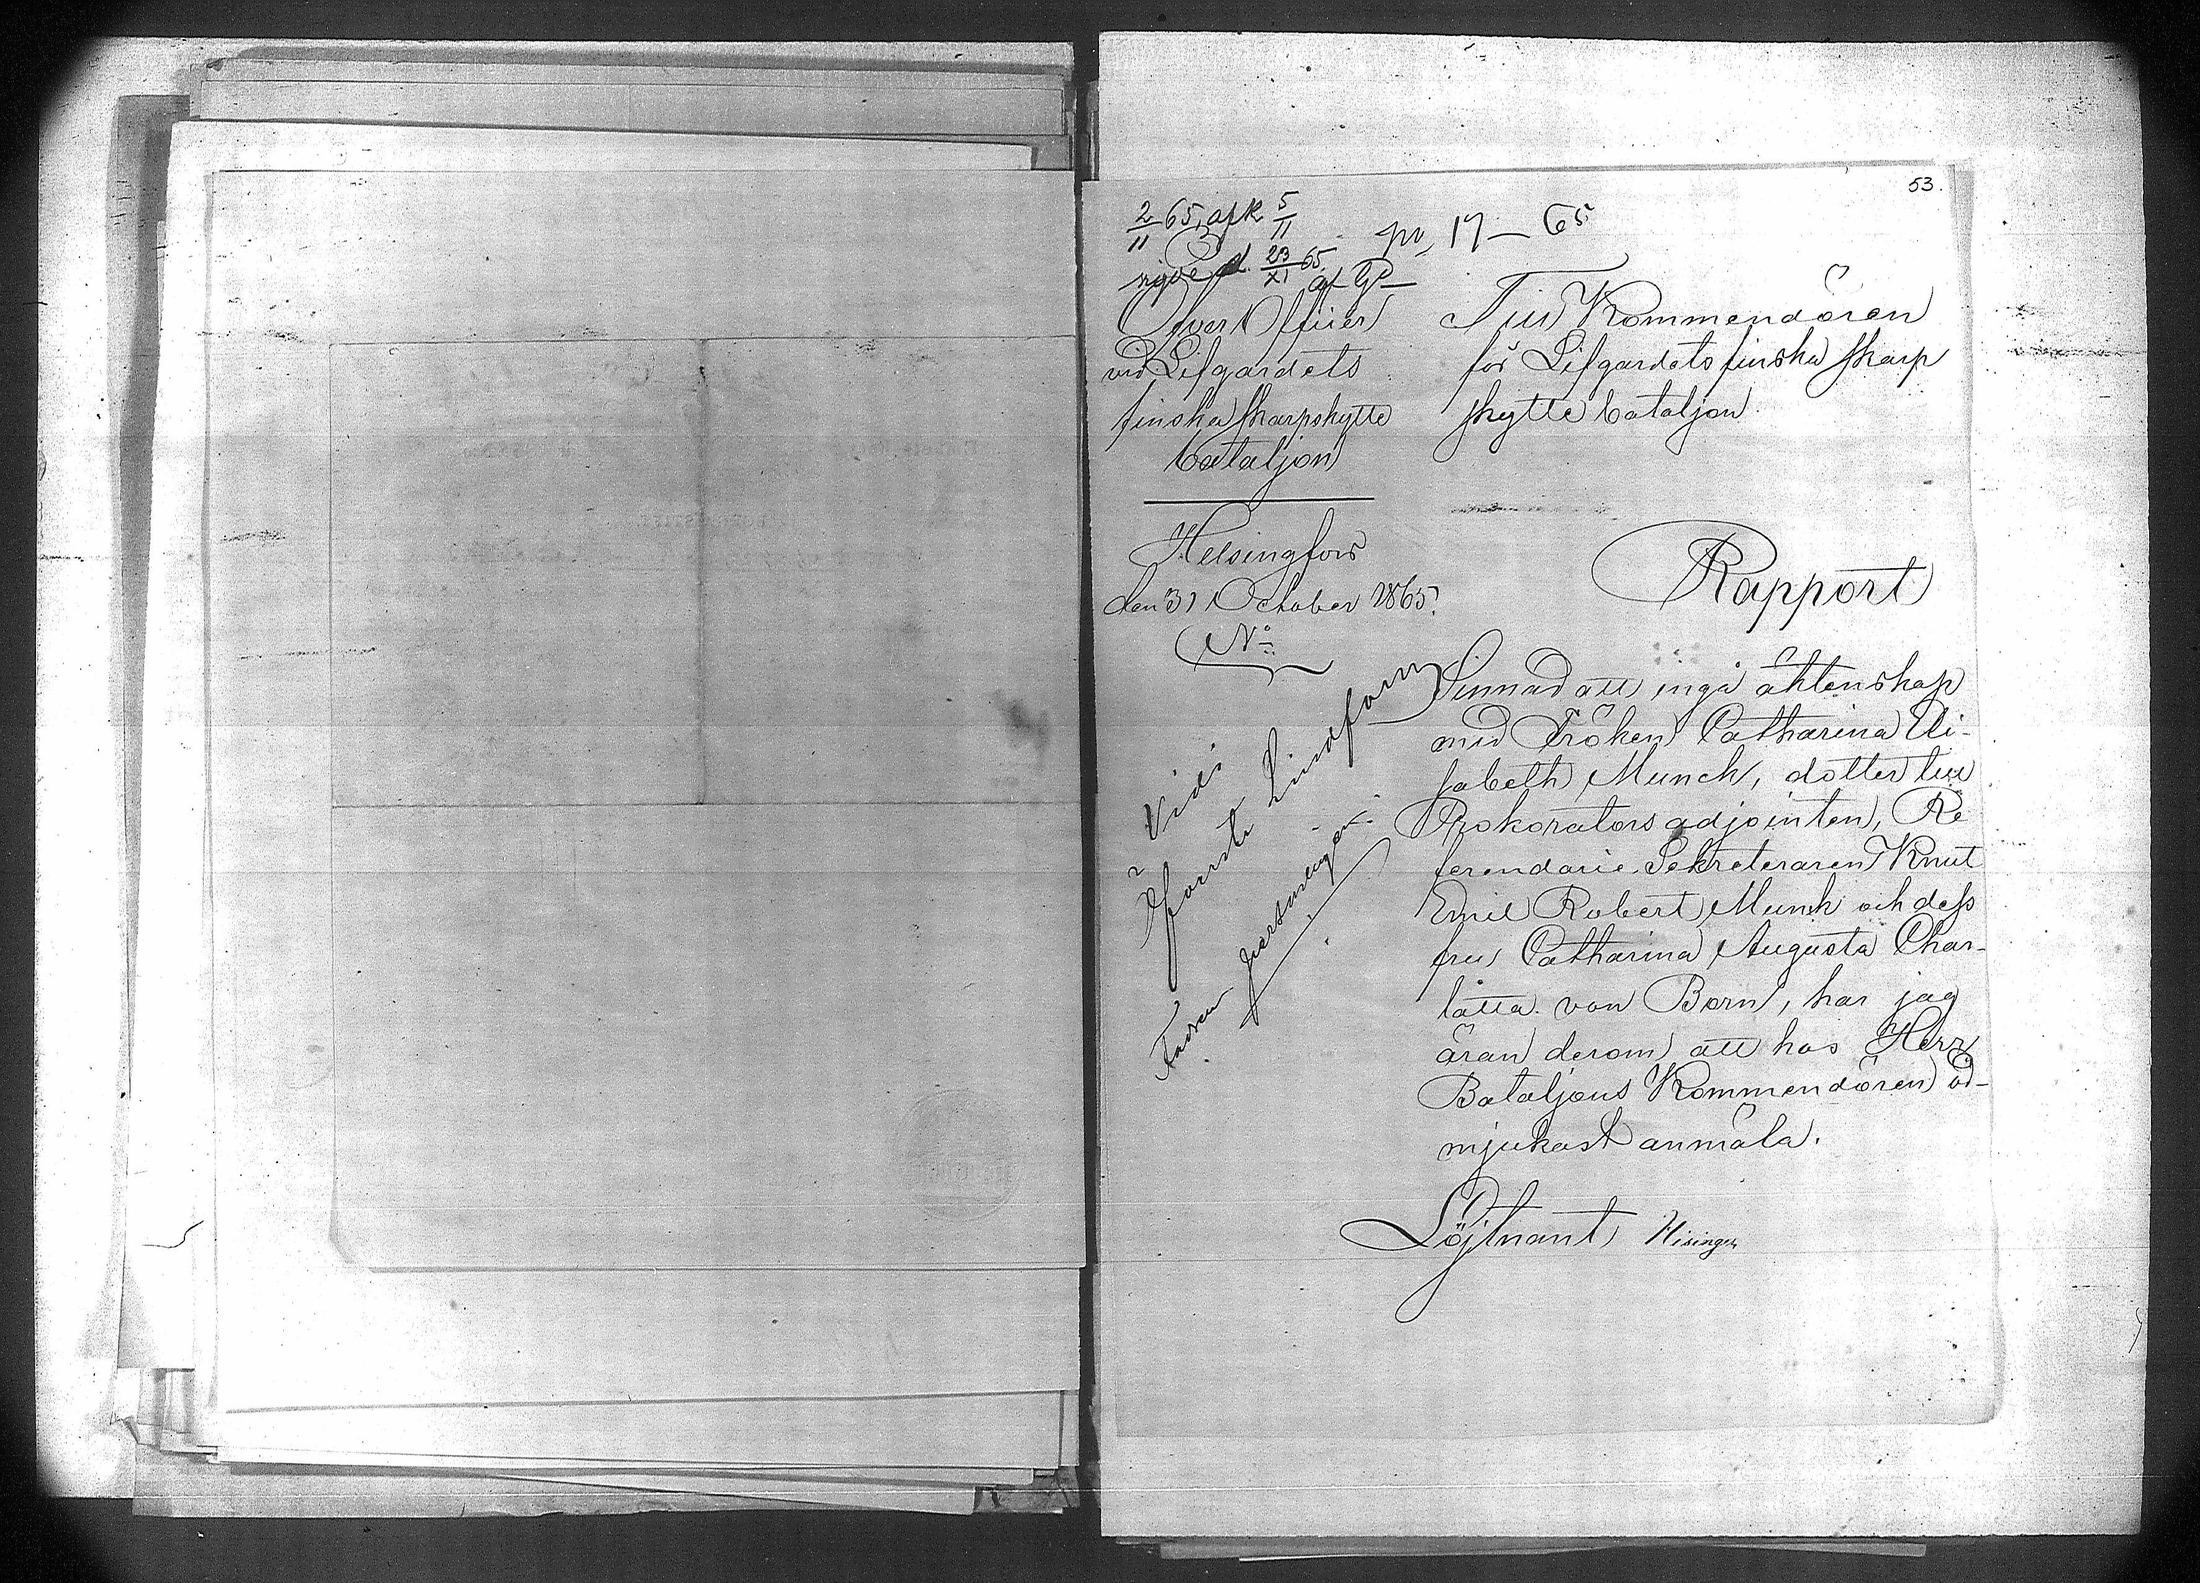 53.
2/11 65, afk 5/11
No 17 — 65
d. 23/XI 65
Öfver Officer
vid Lifgardets
finska skarpskytte
bataljon
Helsingfors
den 31 October 1865.
No
Till Kommendören
för Lifgardets finska skarp
skytte bataljon
Rapport
Sinnad att ingå äktenskap
med Fröken Catharina Eli-
sabeth Munck, dotter till
Prokorators adjointen, Re
ferendarie Sekreteraren Knut
Emil Robert Munck och dess
fru Catharina Augusta Char-
lotta von Born, har jag
äran derom att hos Herr
Bataljons Kommendören öd-
mjukast anmäla.
Löjtnant Hisinger
Vidi
Öfverste Lindfors